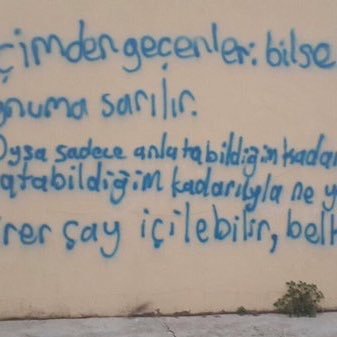 çimden geçenleri bilse
ynuma sarılır.
Oysa sadece anlatabildiğim kadar
atabildiğim kadarıyla ne y
irer çay içilebilir, belk